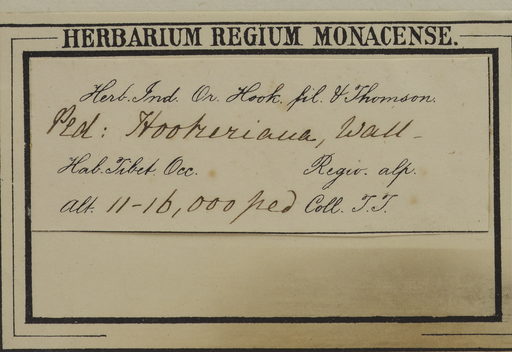 HERBARIUM REGIUM MONACENSE.
Herb. Ind. Or. Hook. fil. & Thomson.
Ped: Hookeriana, Wall-
Hab. Tibet. Occ. Regio. alp.
alt. 11-16,000 ped Coll. T.T.